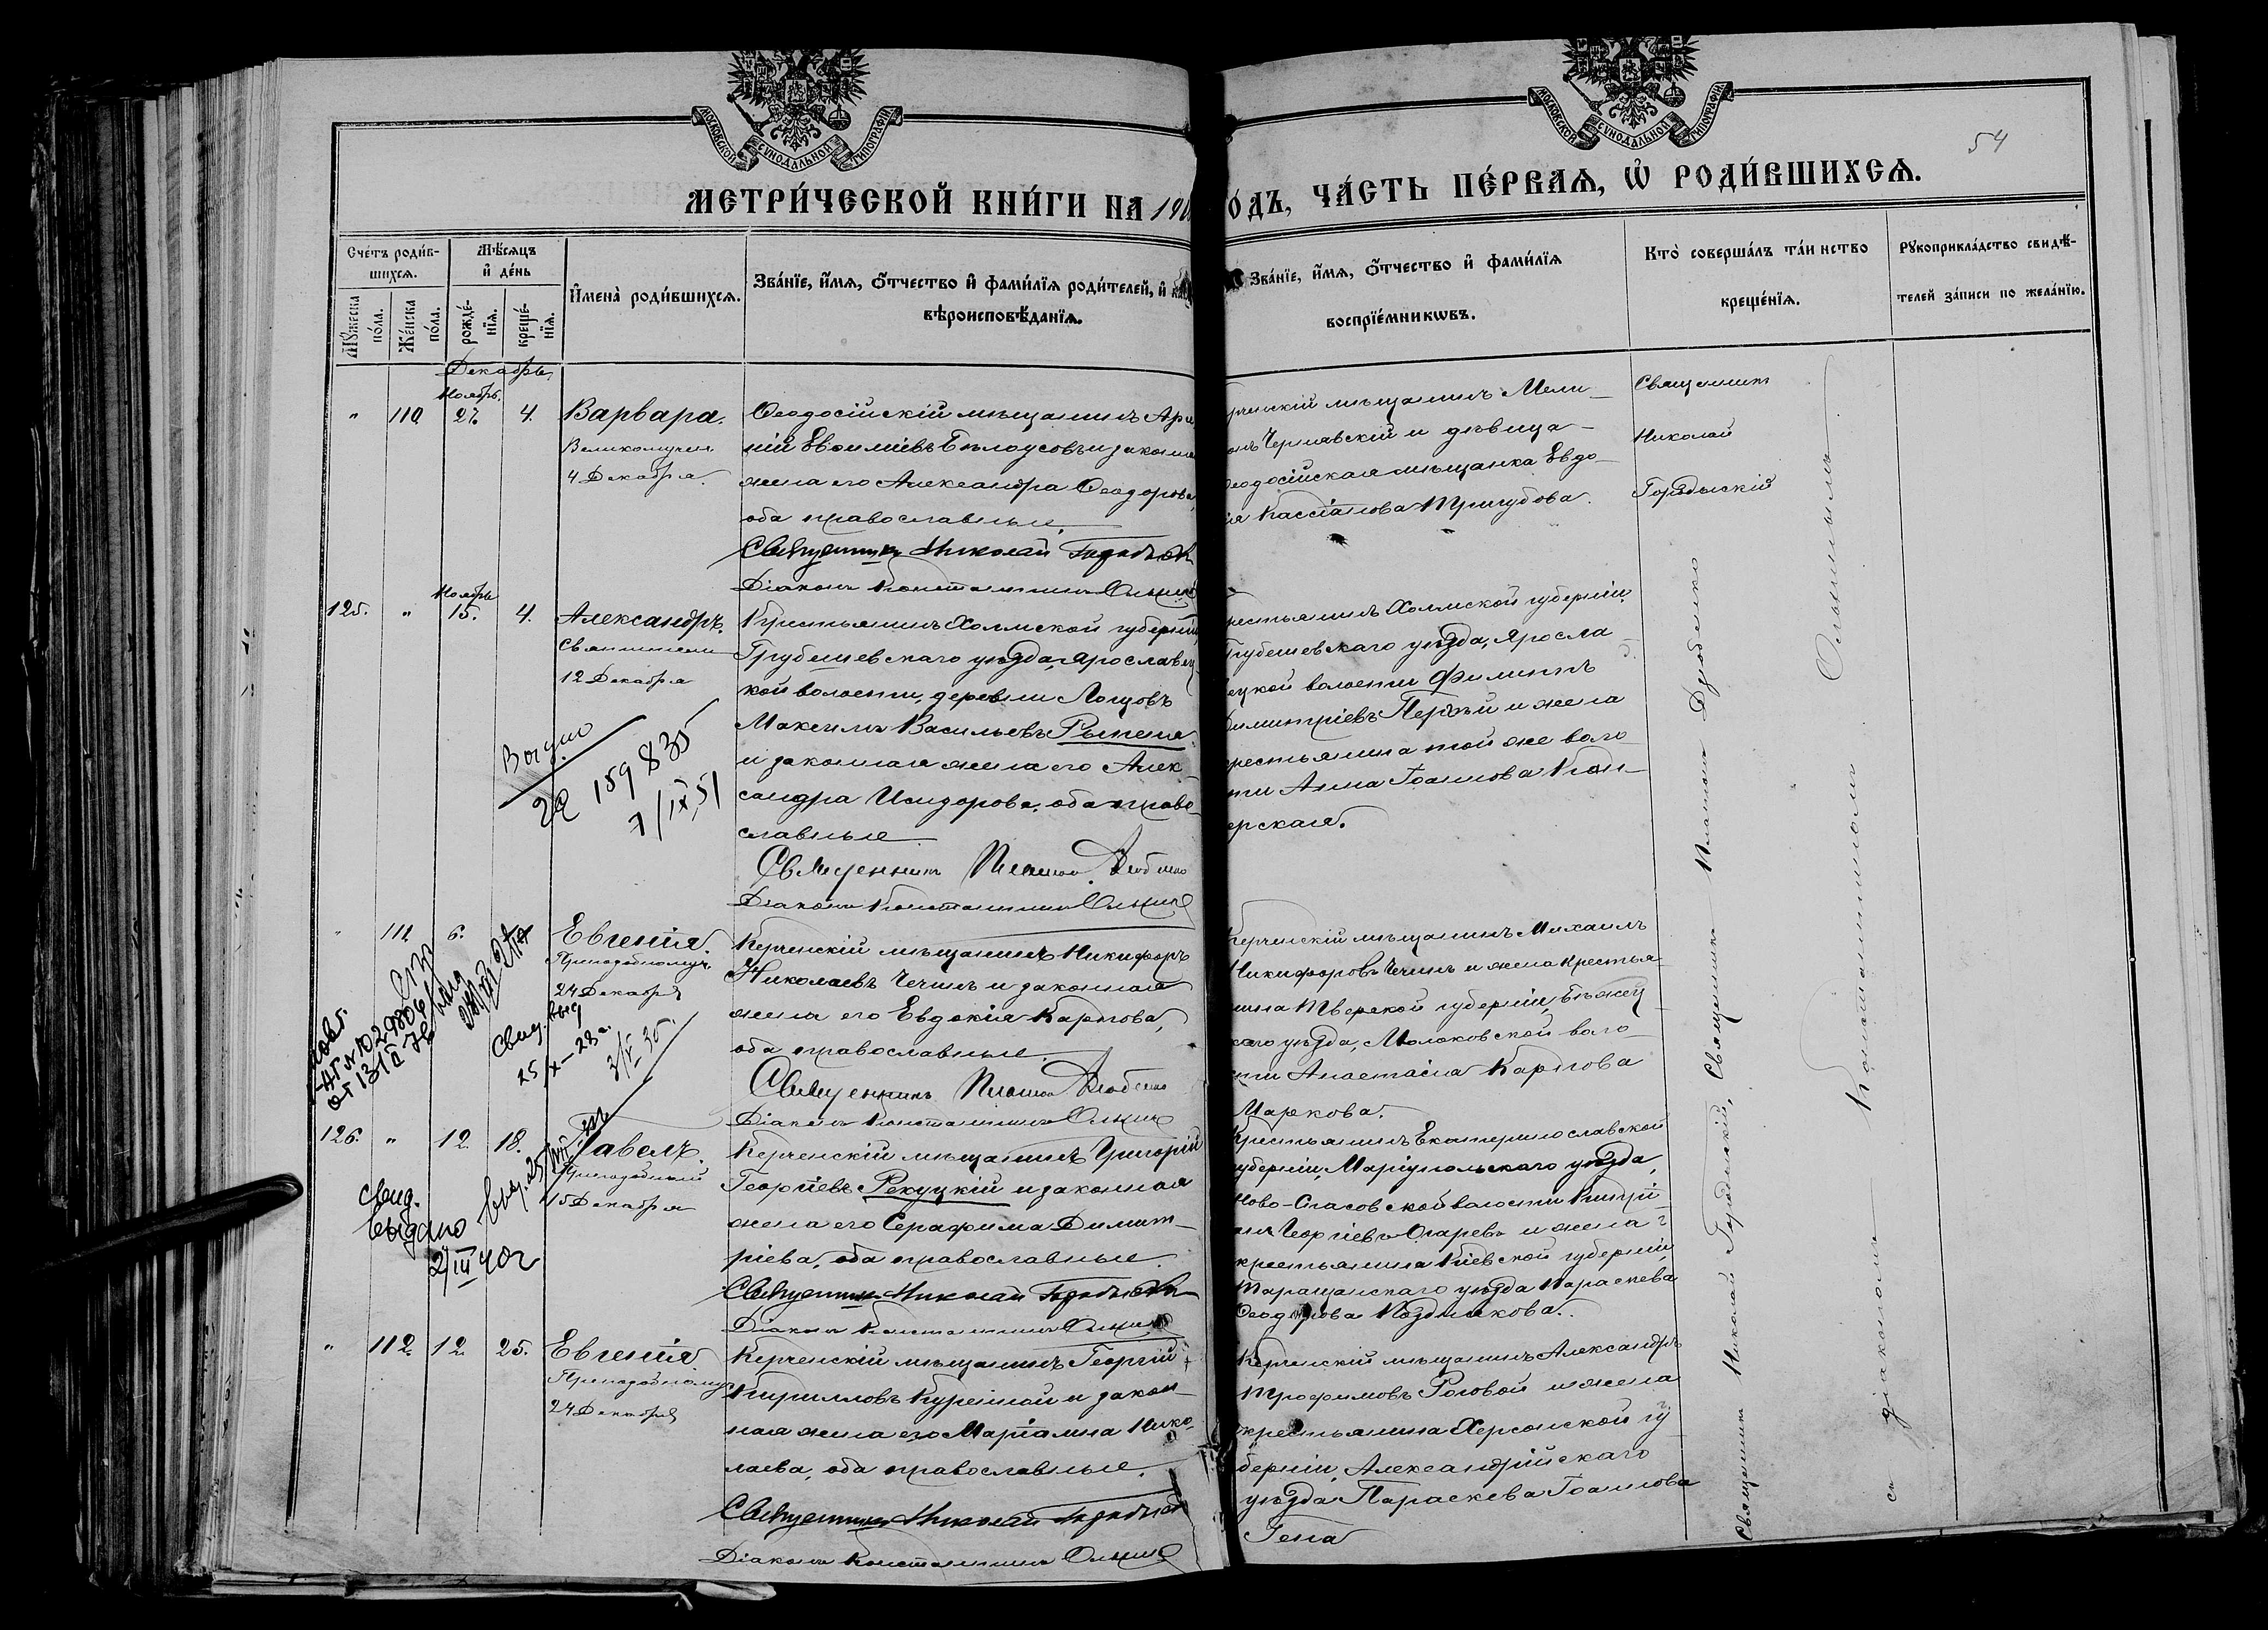 МОСКОВСКОЙ СѴНОДАЛЬНОЙ ТИПОГРАФІИ
МОСКОВСКОЙ СѴНОДАЛЬНОЙ ТИПОГРАФІИ
54
МЕТРИ́ЧЕСКОЙ КНИ́ГИ НА 19
О́ДЪ, ЧА́СТЬ ПЕ́РВАѦ, Ѡ҆ РОДИ́ВШИХСѦ.
Сче́тъ роди́в-
шихсѧ.
Мꙋ́жеска по́ла.
Же́нска по́ла.
Мѣ́сѧцъ
и҆ де́нь
рожде́-
нїѧ.
креще́-
нїѧ.
И҆мена̀ роди́вшихсѧ.
Зва́нїе, и҆́мѧ, ѻ҆́тчество и҆ фами́лїѧ роди́телей, и҆
вѣроисповѣ́данїѧ.
Зва́нїе, и҆́мѧ, ѻ҆́тчество и҆ фами́лїѧ
воспрїе́мникѡвъ.
Кто̀ соверша́лъ та́инство
креще́нїѧ.
Рꙋкоприкла́дство свидѣ́-
телей за́писи по жела́нїю.
Декабрь
Ноябрь.
" 110. 27. 4. Варвара.
Великомучен.
4 Декабря.
Ѳеодосійскій мѣщанинъ Арсе
ній Евѳиміевъ Бѣлоусовъ и законн
жена его Александра Ѳеодорова,
оба православные.
Священникъ Николай
Діаконъ Константинъ
рченскій мѣщанинъ Мели-
онъ Чернявскій и дѣвица
еодосійская мѣщанка Евдо-
ія Кассіанова Тригубова.
Священникъ
Николай
Ноябрь
125. " 15. 4. Александръ.
Святителя
12 Декабря
Крестьянинъ Холмской губерніи,
Грубешевскаго уѣзда, Ярославец
кой волости, деревни Лотовъ
Максимъ Васильевъ Рыпена
и законная жена его Алек-
сандра Исидорова, оба право-
славные
Священникъ Платонъ
Діаконъ Константинъ
рестьянинъ Холмской губерніи,
Грубешевскаго уѣзда, Яросла-
ецкой волости Филиппъ
Димитріевъ Пер и жена
рестьянина той же воло-
сти Анна Іоаннова Кон-
ерская.
159835
7/IX 51
" 111. 6. Евгенія.
Преподобномуч.
24 Декабря
Керченскій мѣщанинъ Никифоръ
Николаевъ Чечинъ и законная
жена его Евдокія Карпова,
оба православные.
Священникъ Платонъ
Діаконъ Константинъ
Керченскій мѣщанинъ Михаилъ
Никифоровъ Чечинъ и жена крестья-
нина Тверской губерніи, Бѣжец
каго уѣзда, Молоковской воло-
сти Анастасія Карпова
Маркова.
Свид. выд
25/X-23 г.
126. " 12. 18. Павелъ.
Преподобный
15 Декабря
Керченскій мѣщанинъ Григорій
Георгіевъ Рекуцкій и законная
жена его Серафима Димит-
ріева, оба православные.
Священникъ Николай
Діаконъ Константинъ
Крестьянинъ Екатеринославской
губерніи, Маріупольскаго уѣзда,
Ново-Спасовской волости Кипрі-
анъ Георгіевъ Огаревъ и жена
крестьянина Кіевской губерніи,
Таращанскаго уѣзда Параскева
Ѳеодорова Позднякова.
Свид.
выдано
2/III 40 г
" 112. 12. 25. Евгенія.
Преподобномуч
24 Декабря
Керченскій мѣщанинъ Георгій
Кирилловъ Куренной и закон-
ная жена его Маріамна Нико-
лаева, оба православные.
Священникъ Николай
Діаконъ Константинъ
Керченскій мѣщанинъ Александръ
Трофимовъ Роговой и жена
крестьянина Херсонской гу
берніи, Александрійскаго
уѣзда Параскева Іоаннова
Гена
Священникъ Николай Священникъ Платонъ
съ діакономъ Константиномъ